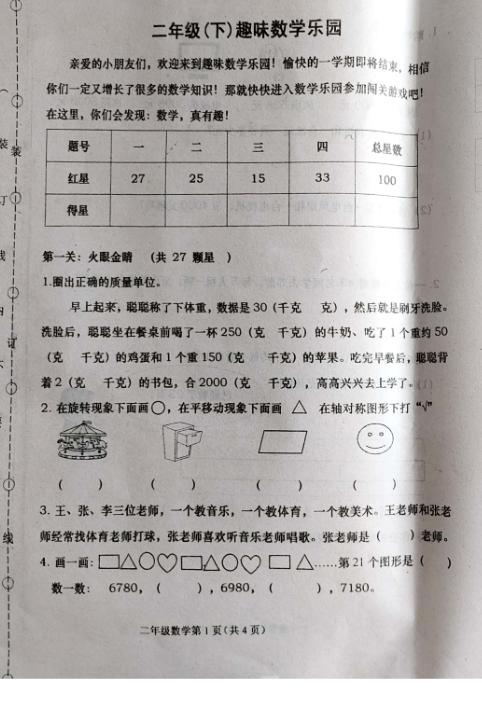 二年级(下)趣味数学乐园
亲爱的小朋友们，欢迎来到趣味数学乐园！愉快的一学期即将结束，相信
你们一定又增长了很多的数学知识！那就快快进入数学乐园参加闯关游戏吧！
在这里，你们会发现：数学，真有趣！
题号 一 二 三 四 总星数
红星 27 25 15 33 100
得星
第一关：火眼金睛 （共 27 颗星 ）
1.圈出正确的质量单位。
早上起来，聪聪称了下体重，数据是 30（千克 克），然后就是刷牙洗脸。
洗脸后，聪聪坐在餐桌前喝了一杯 250（克 千克）的牛奶、吃了 1 个重约 50
（克 千克）的鸡蛋和 1 个重 150（克 千克）的苹果。吃完早餐后，聪聪背
着 2（克 千克）的书包，合 2000（克 千克），高高兴兴去上学了。
2. 在旋转现象下面画○，在平移动现象下面画 △ 在轴对称图形下打“√”
（ ） （ ） （ ） （ ）
3. 王、张、李三位老师，一个教音乐，一个教体育，一个教美术。王老师和张老
师经常找体育老师打球，张老师喜欢听音乐老师唱歌。张老师是（ ）老师。
4. 画一画：□△○♡□△○♡ □ △……第 21 个图形是（ ）
数一数： 6780，（ ），6980，（ ），7180。
二年级数学第 1 页（共 4 页）
装
订
线